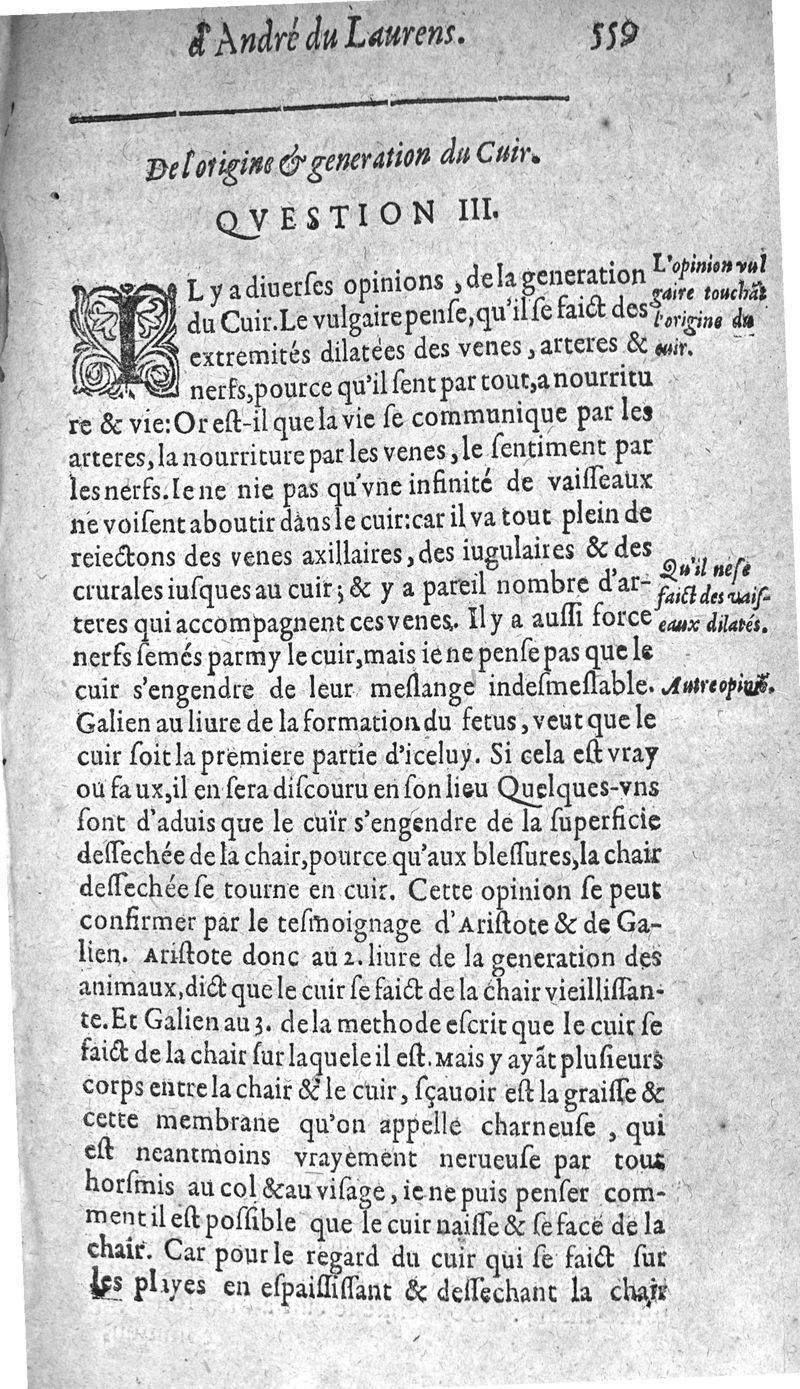 d'André du Laurens. 559
De l'origine & generation du Cuir.
QVESTION III.
IL y a diuerſes opinions, de la generation
du Cuir. Le vulgaire penſe, qu'il ſe faict des
extremités dilatées des venes, arteres &
nerfs, pource qu'il ſent par tout, a nourritu
re & vie: Or eſt-il que la vie ſe communique par les
arteres, la nourriture par les venes, le ſentiment par
les nerfs. Ie ne nie pas qu'vne infinité de vaiſſeaux
ne voiſent aboutir dàns le cuir: car il va tout plein de
reiectons des venes axillaires, des iugulaires & des
crurales iuſques au cuir; & y a pareil nombre d'ar-
teres qui accompagnent ces venes. Il y a auſſi force
nerfs ſemés parmy le cuir, mais ie ne penſe pas que le
cuir s'engendre de leur meſlange indeſmeſlable.
Galien au liure de la formation du fetus, veut que le
cuir ſoit la premiere partie d'iceluy. Si cela eſt vray
ou faux, il en ſera diſcouru en ſon lieu Quelques-vns
ſont d'aduis que le cuïr s'engendre de la ſuperficie
deſſechée de la chair, pource qu'aux bleſſures, la chair
deſſechée ſe tourne en cuir. Cette opinion ſe peut
confirmer par le teſmoignage d'Ariſtote & de Ga-
lien. Ariſtote donc au 2. liure de la generation des
animaux, dict que le cuir ſe faict de la chair vieilliſſan-
te. Et Galien au 3. de la methode eſcrit que le cuir ſe
faict de la chair ſur laquele il eſt. Mais y ayãt pluſieurs
corps entre la chair & le cuir, ſçauoir eſt la graiſſe &
cette membrane qu'on appelle charneuſe, qui
eſt neantmoins vrayement nerueuſe par tout
horſmis au col & au viſage, ie ne puis penſer com-
ment il eſt poſſible que le cuir naiſſe & ſe face de la
chair. Car pour le regard du cuir qui ſe faict ſur
les playes en eſpaiſſiſſant & deſſechant la chair
L'opinion vul
gaire touchãt
l'origine du
cuir.
Qu'il ne ſe
faict des vaiſ-
eaux dilatés.
Autre opiniõ.